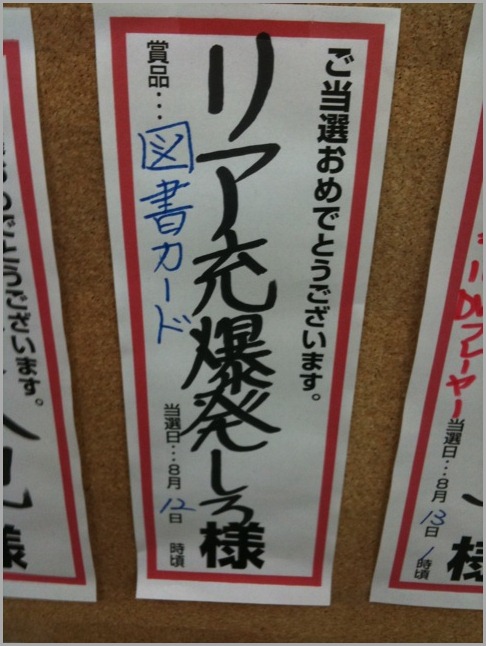 ご当選おめでとうございます。
リア充爆発しろ様
賞品…図書カード
当選日…8月12日 時頃
DVDプレーヤー
当選日…8月13日1時頃
様
でとうございます。
様